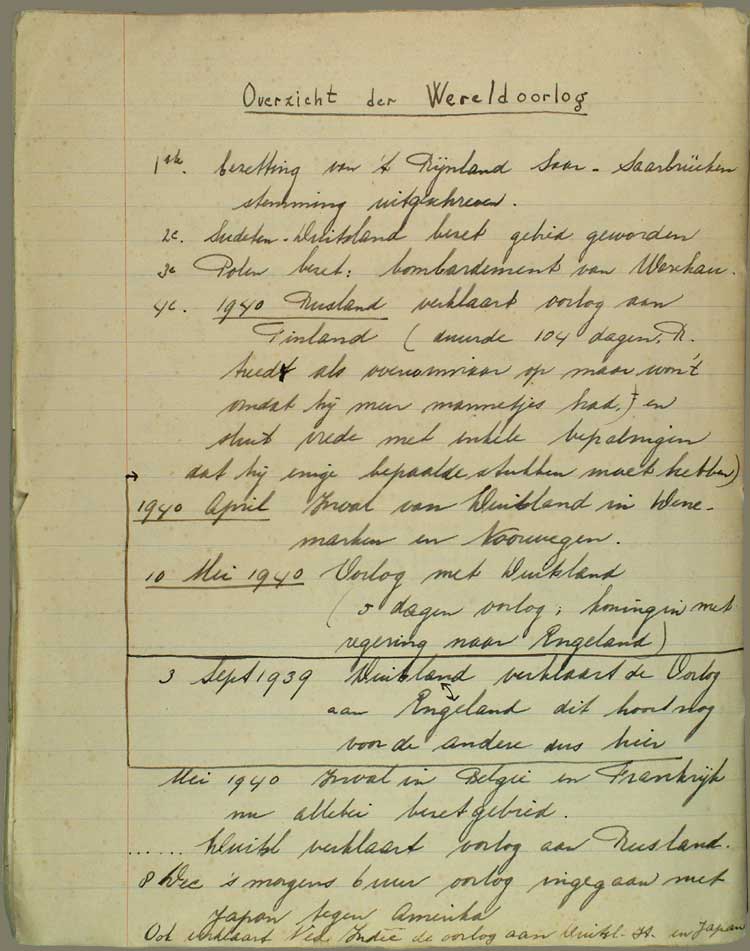 Overzicht der Wereldoorlog
1ste. bezetting van 't Rijnland Saar - Saarbrücken
stemming uitgeschreven.
2e. Sudeten-Duitsland bezet gebied geworden
3e Polen bezet: bombardement van Warschau.
4e. 1940 Rusland verklaart oorlog aan
Finland (duurde 104 dagen, R.
treedt als overwinnaar op maar won 't
omdat hij meer mannetjes had,) en
sluit vrede met enkele bepalingen
dat hij enige bepaalde stukken moet hebben)
1940 April Inval van Duitsland in Dene-
marken en Noorwegen.
10 Mei 1940 Oorlog met Duitsland
(5 dagen oorlog; koningin met
regering naar Engeland)
3 Sept 1939 Duitsland verklaart de Oorlog
aan Engeland dit hoort nog
voor de andere dus hier
Mei 1940 Inval in België en Frankrijk
nu allebei bezet gebied.
...... Duitsl verklaart oorlog aan Rusland.
8 Dec 's morgens 6 uur oorlog ingegaan met
Japan tegen Amerika
Ook verklaart Ned. Indië de oorlog aan Duitsl. It. en Japan